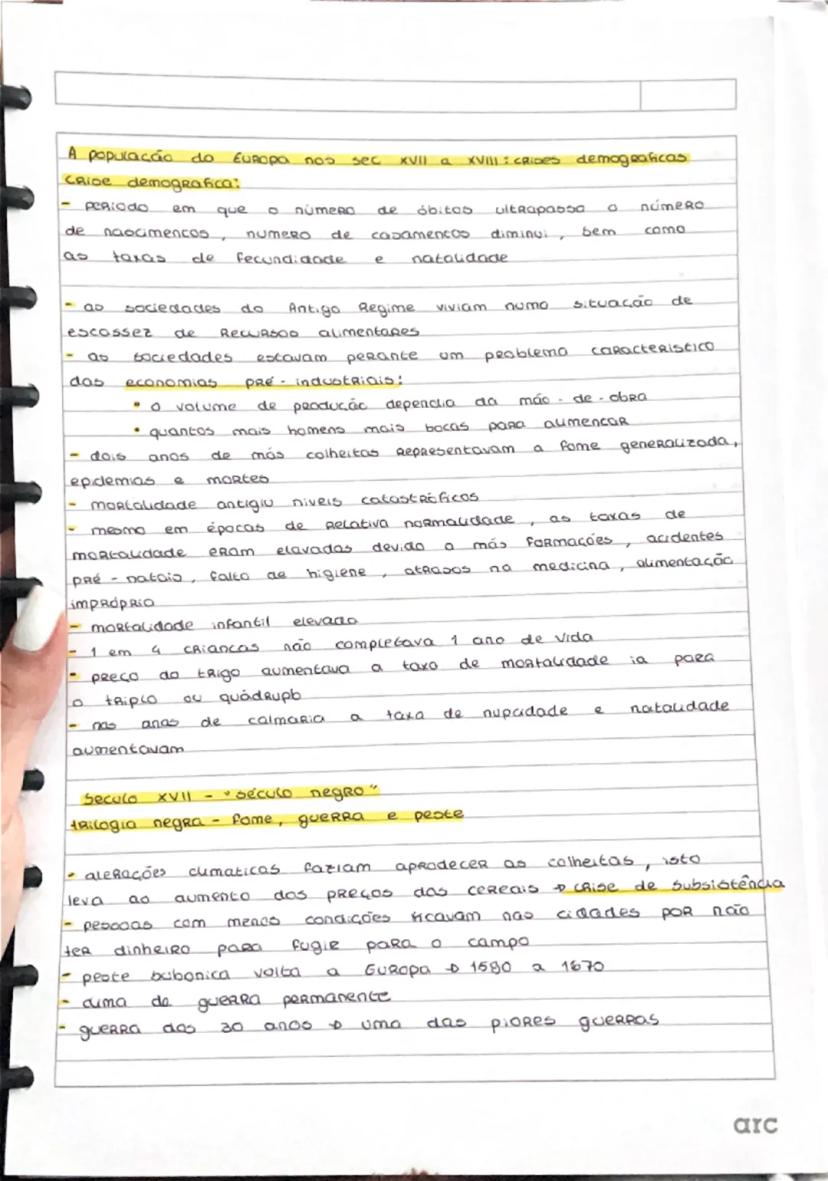 A população da Europa nos sec XVII a XVIII: crises demograficas
crise demografica:
- periodo em que o número de óbitos ultrapassa o número
de nascimentos, numero de casamentos diminui, bem como
as taxas de fecundidade e natalidade
- as sociedades do Antigo Regime viviam numa situação de
escassez de recursos alimentares
- as sociedades estavam perante um problema caracteristico
das economias pré-industriais:
• o volume de produção dependia da mão-de-obra
• quantos mais homens mais bocas para aumentar
- dois anos de más colheitas representavam a fome generalizada,
epidemias e mortes
- mortalidade antigiu niveis catastróficos
- mesmo em épocas de relativa normalidade, as taxas de
mortalidade eram elavadas devido a más formações, acidentes
pré-natais, falta de higiene, atrasos na medicina, alimentação
imprópria
- mortalidade infantil elevada
- 1 em 4 criancas não completava 1 ano de vida
- preço do trigo aumentava a taxa de mortalidade ia para
o triplo ou quádruplo
- nos anos de calmaria a taxa de nupcidade e natalidade
aumentavam
Seculo XVII - "século negro"
trilogia negra - fome, guerra e peste
- alerações climaticas faziam aprodecer as colheitas, isto
leva ao aumento dos preços dos cereais → crise de subsistência
- pessoas com menos condições ficavam nas cidades por não
ter dinheiro para fugir para o campo
- peste bubonica volta a Europa → 1590 a 1670
- clima de guerra permanente
- guerra dos 30 anos → uma das piores guerras
arc